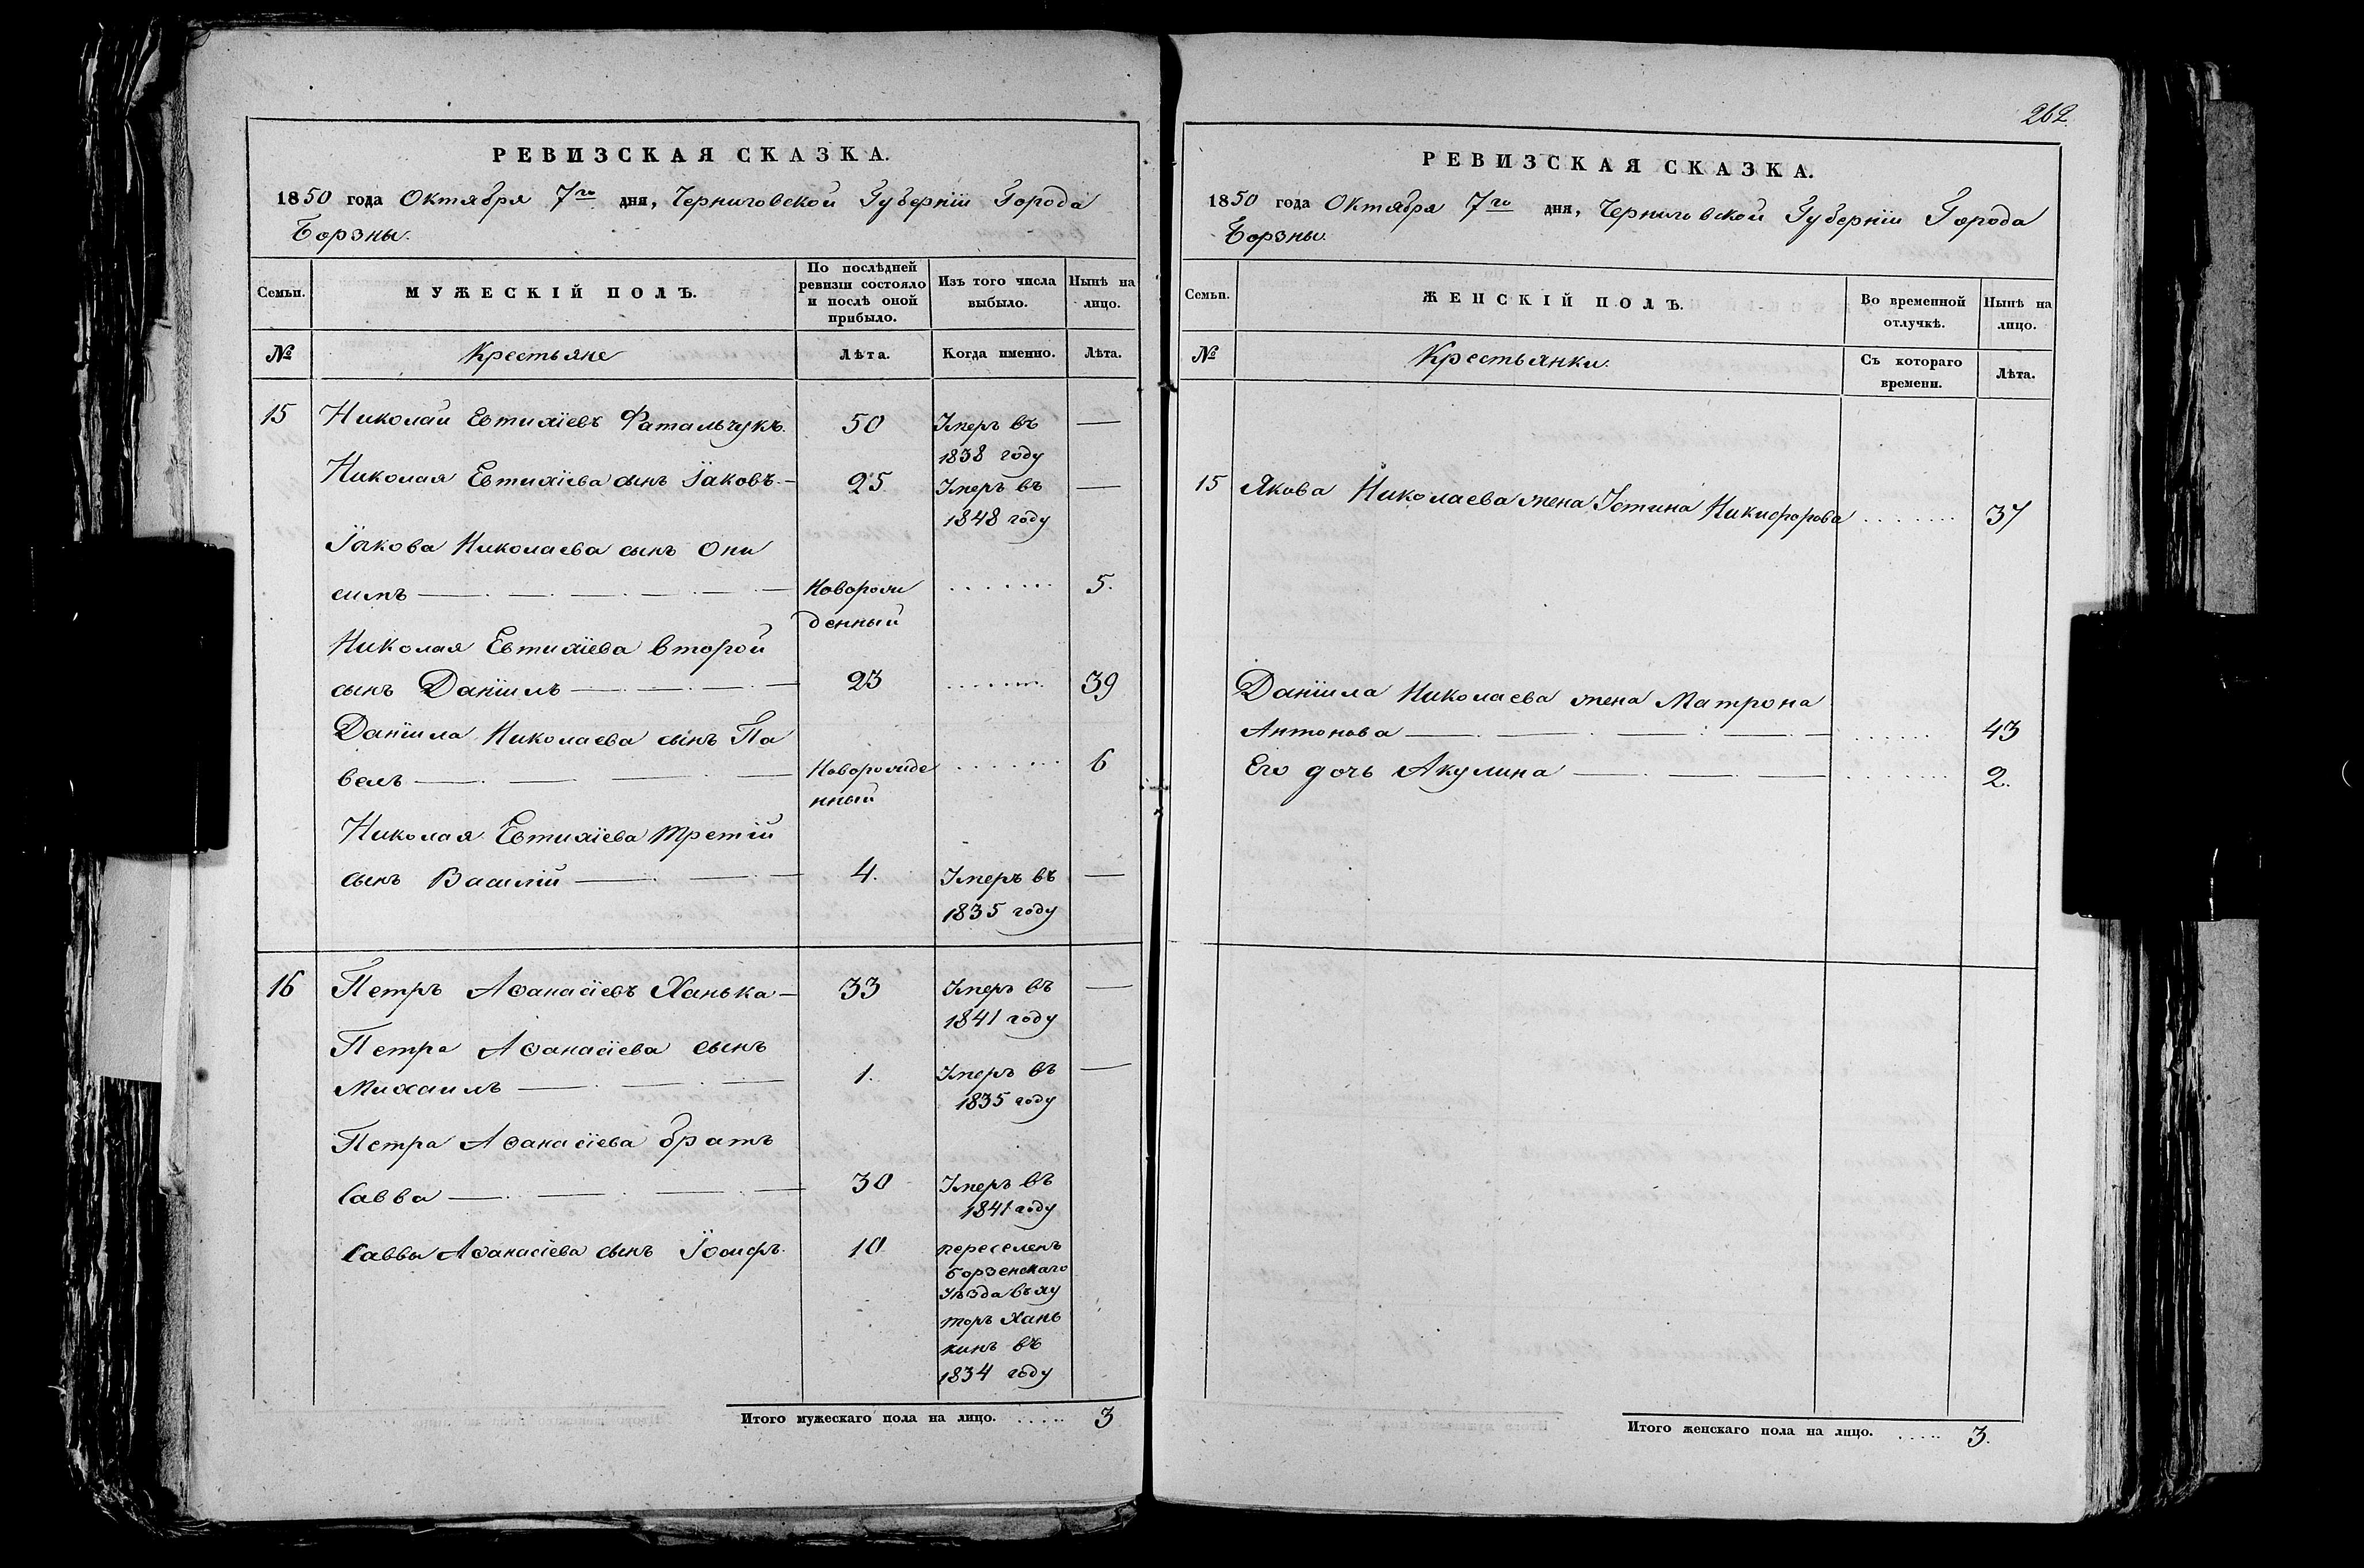 РЕВИЗСКАЯ СКАЗКА.
1850 года Октября 7го дня, Черниговской Губерніи Города
Борзны.
Семьи.
МУЖЕСКІЙ ПОЛЪ.
По послѣдней
ревизіи состояло
и послѣ оной
прибыло.
Изъ того числа
выбыло.
Нынѣ на
лицо.
№
Крестьяне
Лѣта.
Когда именно.
Лѣта.
15 Николай Евтихіевъ Фатальчукъ. 50 Умеръ въ —
1838 году
Николая Евтихіева сынъ Іаковъ. — 25 Умеръ въ —
1848 году
Іякова Николаева сынъ Они
симъ — Новорож ....... 5.
денный
Николая Евтихіева второй
сынъ Даніилъ — 23 ....... 39
Даніила Николаева сынъ Па
велъ — Новорожде ....... 6
нный
Николая Евтихіева третій
сынъ Василій — 4. Умеръ въ —
1835 году
16 Петръ Аѳанасіевъ Ханька — 33 Умеръ въ —
1841 году
Петра Аѳанасіева сынъ
Михаилъ — 1. Умеръ въ —
1835 году
Петра Аѳанасіева братъ
Савва — 30 Умеръ въ
1841 году
Саввы Аѳанасіева сынъ Іосифъ. 10 переселенъ
Борзенскаго
Уѣзда въ ху
торъ Хань
кинъ въ
1834 году
Итого мужескаго пола на лицо. ..... 3
262.
РЕВИЗСКАЯ СКАЗКА.
1850 года Октября 7го дня, Черниговской Губерніи Города
Борзны.
Семьи.
ЖЕНСКІЙ ПОЛЪ.
Во временной
отлучкѣ.
Нынѣ на
лицо.
№
Крестьянки.
Съ котораго
времени.
Лѣта.
15 Якова Николаева жена Устина Никифорова ....... 37
Даніила Николаева жена Матрона
Антонова — ...... 43
Его дочь Акулина — ....... 2.
Итого женскаго пола на лицо. ..... 3.